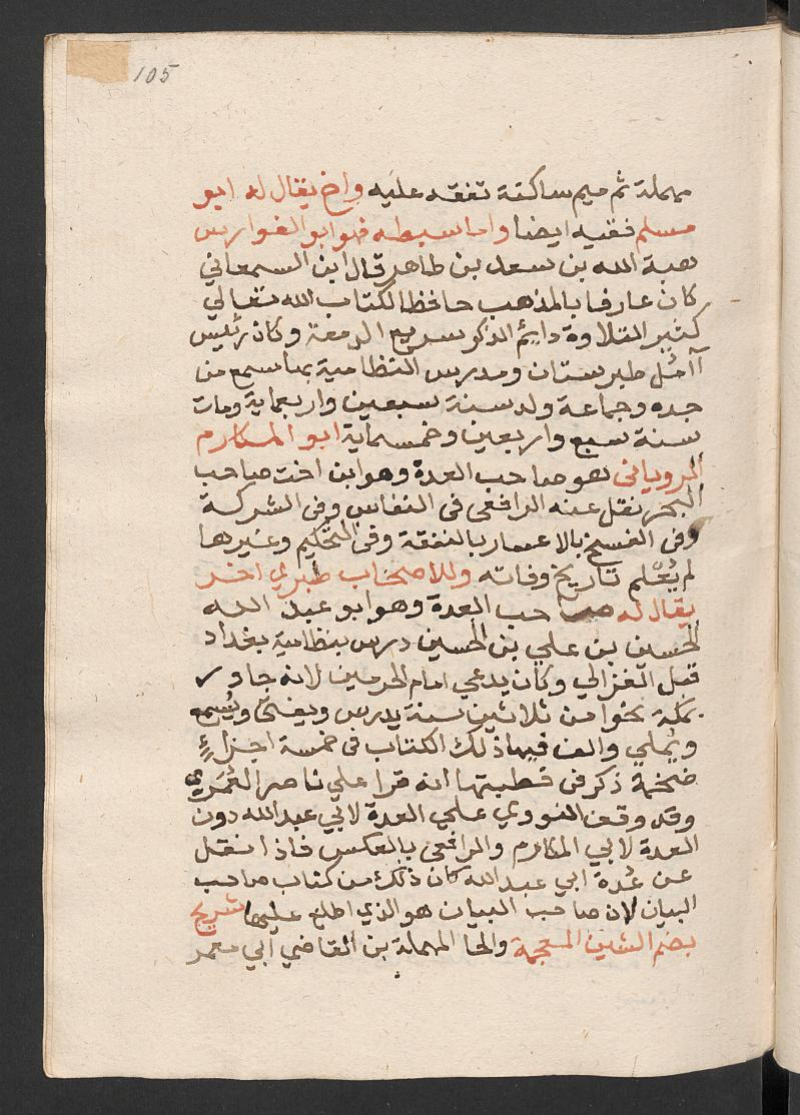 105
مهملة ثم ميم ساكنة تفقه عليه واخ يقال له ابو
مسلم فقيه ايضا واما سبطه فهو ابو الفوارس
هبة الله بن سعد بن طاهر قال ابن السمعاني
كان عارفا بالمذهب حافظا لكتاب الله تعالي
كثير التلاوة دايم الذكر سريع الدمعة وكان رئيس
آمُل طبرستان ومدرس النظامية بها سمع من
جده وجماعة ولد سنة سبعين واربعماية ومات
سنة سبع واربعين وخمسماية ابو المكارم
الروياني هو صاحب العدة وهو ابن اخت صاحب
البحر نقل عنه الرافعي في النفاس وفي الشركة
وفي الفسخ بالاعسار بالنفقة وفي التحكيم وغيرها
لم يُعلم تاريخ وفاته وللاصحاب طبري اخر
يقال له صاحب العدة وهو ابو عبد الله
الحسين بن علي بن الحسين درس بنظامية بغداد
قبل الغزالي وكان يدعي امام الحرمين لانه جاور
بمكة نحوا من ثلاثين سنة يدرس ويفتي ويُسمع
ويُملي والف فيها ذلك الكتاب في خمسة اجزاء
ضخمة ذكر في خطبتها انه قرا علي ناصر العُمَري
وقد وقف النووي علي العدة لابي عبد الله دون
العدة لابي المكارم والرافعي بالعكس فاذا نقل
عن عُدة ابي عبد الله كان ذلك من كتاب صاحب
البيان لان صاحب البيان هو الذي اطلع عليها شريح
بضم الشين المعجمة والحا المهملة بن القاضي ابي معمر